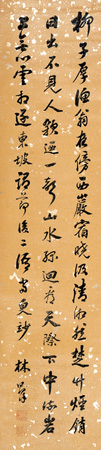 柳子厚漁翁夜傍西巖宿曉汲清湘然楚竹煙銷
日出不見人欸迺一聲山水綠迴看天際下中流岩
上無心雲相逐東坡謂節後二語更妙 林